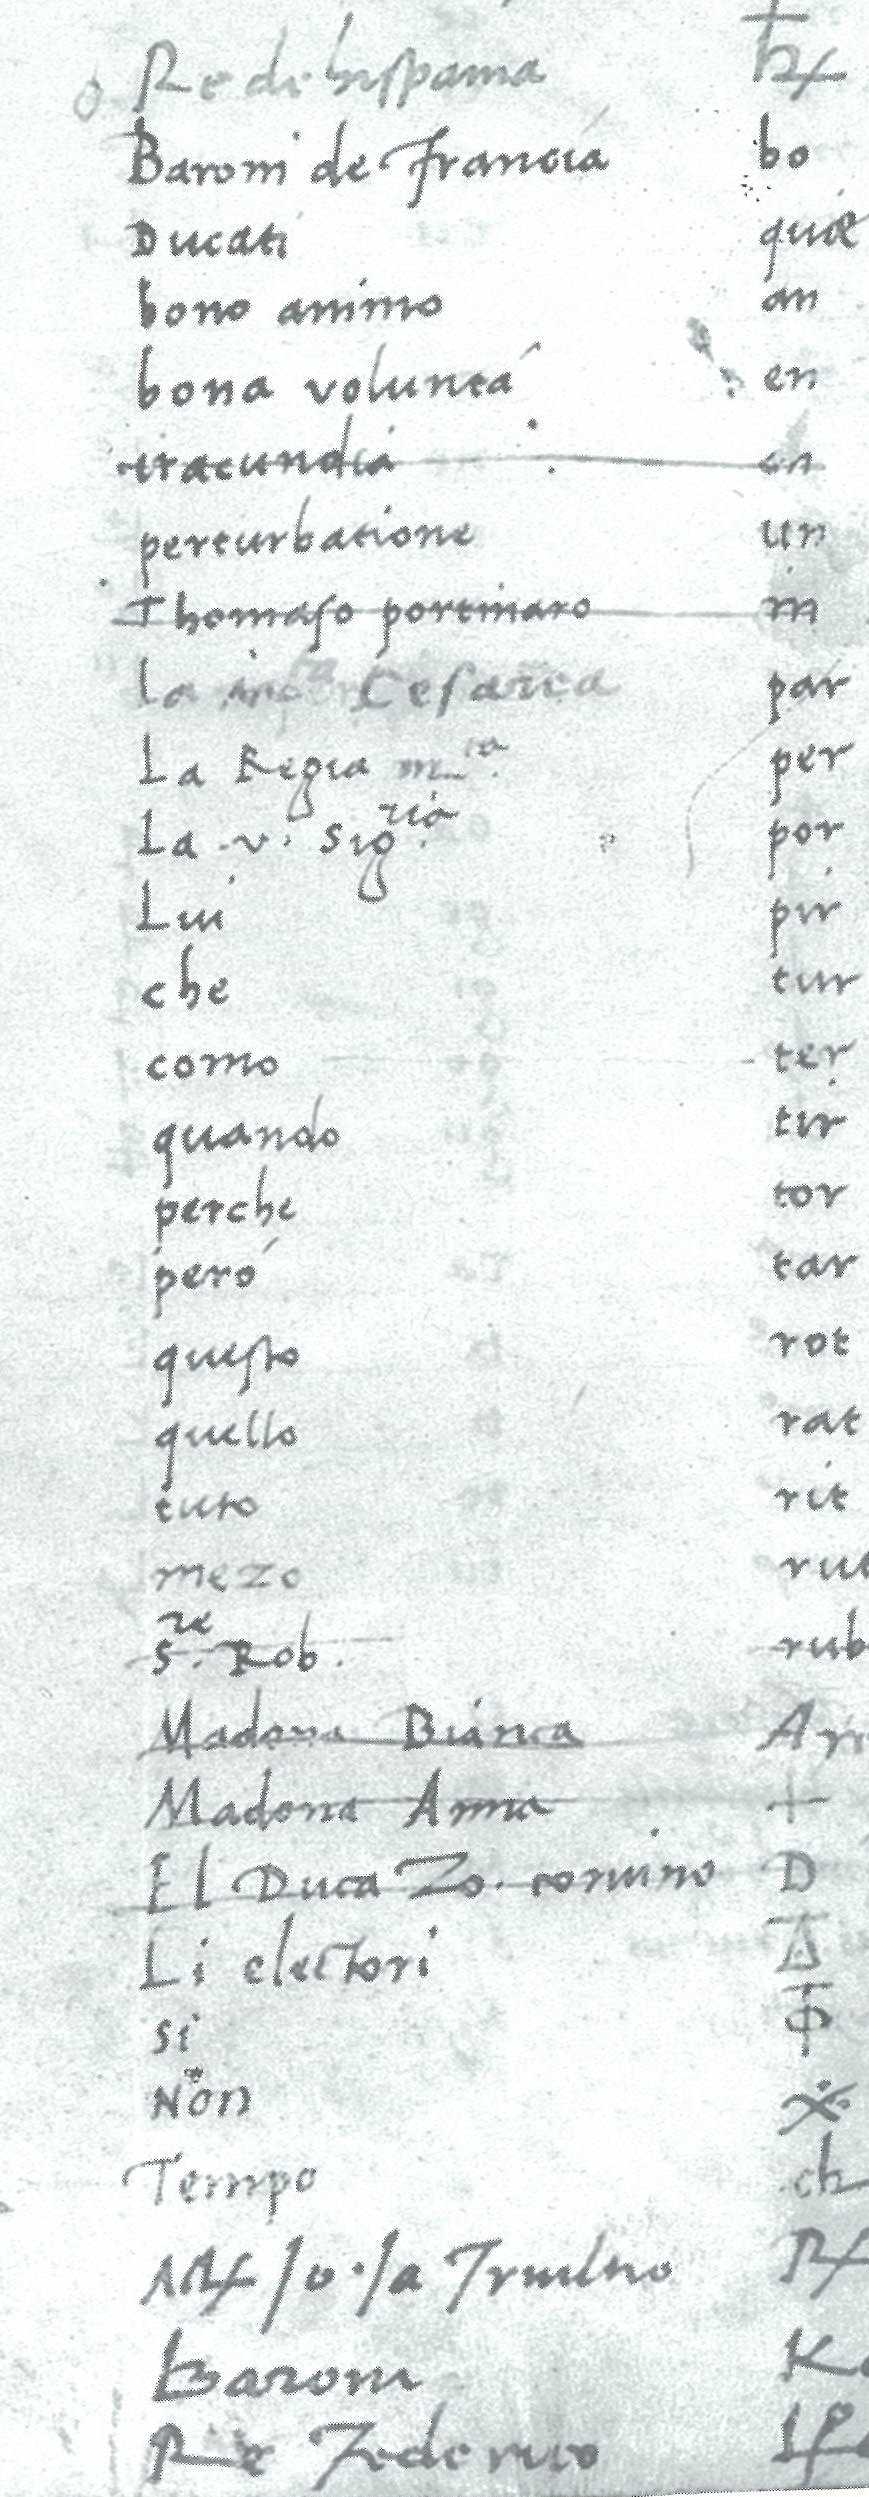 Re de hispania
Baroni de Francia bo
Ducati quæ
bono animo an
bona voluntá en
iracundia in
perturbatione un
Thomaso portinaro in
La Cesarea par
La Regia m.ta per
La v. Sig.ria por
Lui pir
che tur
como ter
quando tir
perche tor
peró tar
questo rot
quello rat
tuto rit
mezo rut
S.re Rob. rub
Madona Bianca
Madona Anna +
El Duca Zo. D
Li electori
si
Non
Tempo ch
Baroni
Re Federico